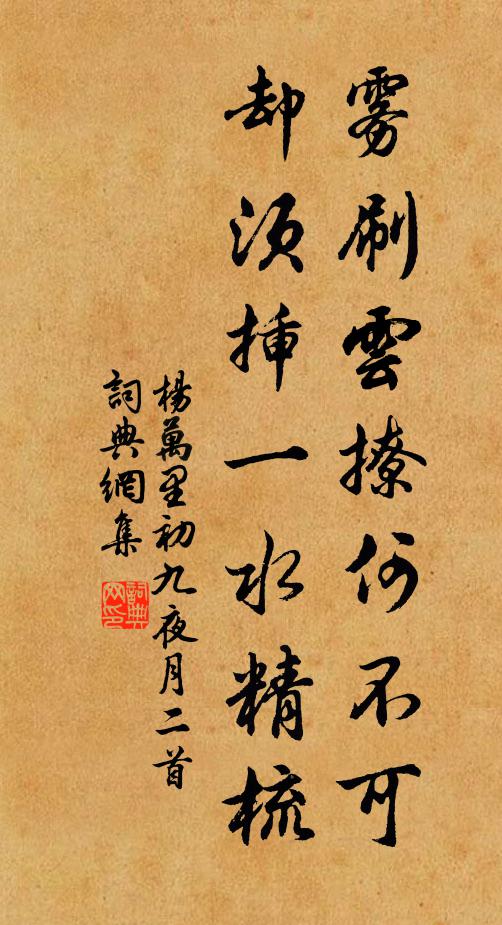 雾刷雲撩何不可
却須挿一水精梳
楊萬里初九夜月二首
詞典網集
詞典网印